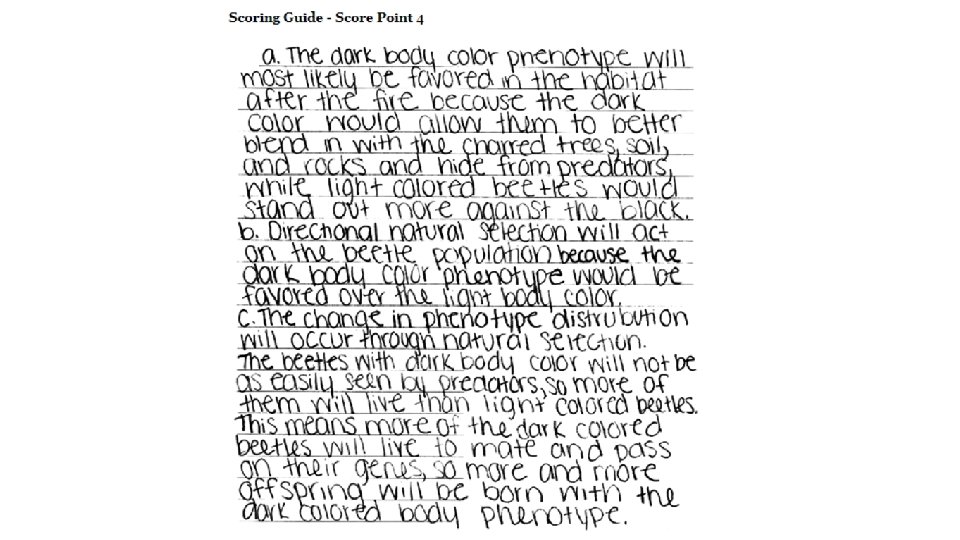 Scoring Guide - Score Point 4
a. The dark body color phenotype will
most likely be favored in the habitat
after the fire because the dark
color would allow them to better
blend in with the charred trees, soil,
and rocks and hide from predators,
while light colored beetles would
stand out more against the black.
b. Directional natural selection will act
on the beetle population because the
dark body color phenotype would be
favored over the light body color.
c. The change in phenotype distrubution
will occur through natural selection.
The beetles with dark body color will not be
as easily seen by predators, so more of
them will live than light colored beetles.
This means more of the dark colored
beetles will live to mate and pass
on their genes, so more and more
offspring will be born with the
dark colored body phenotype.